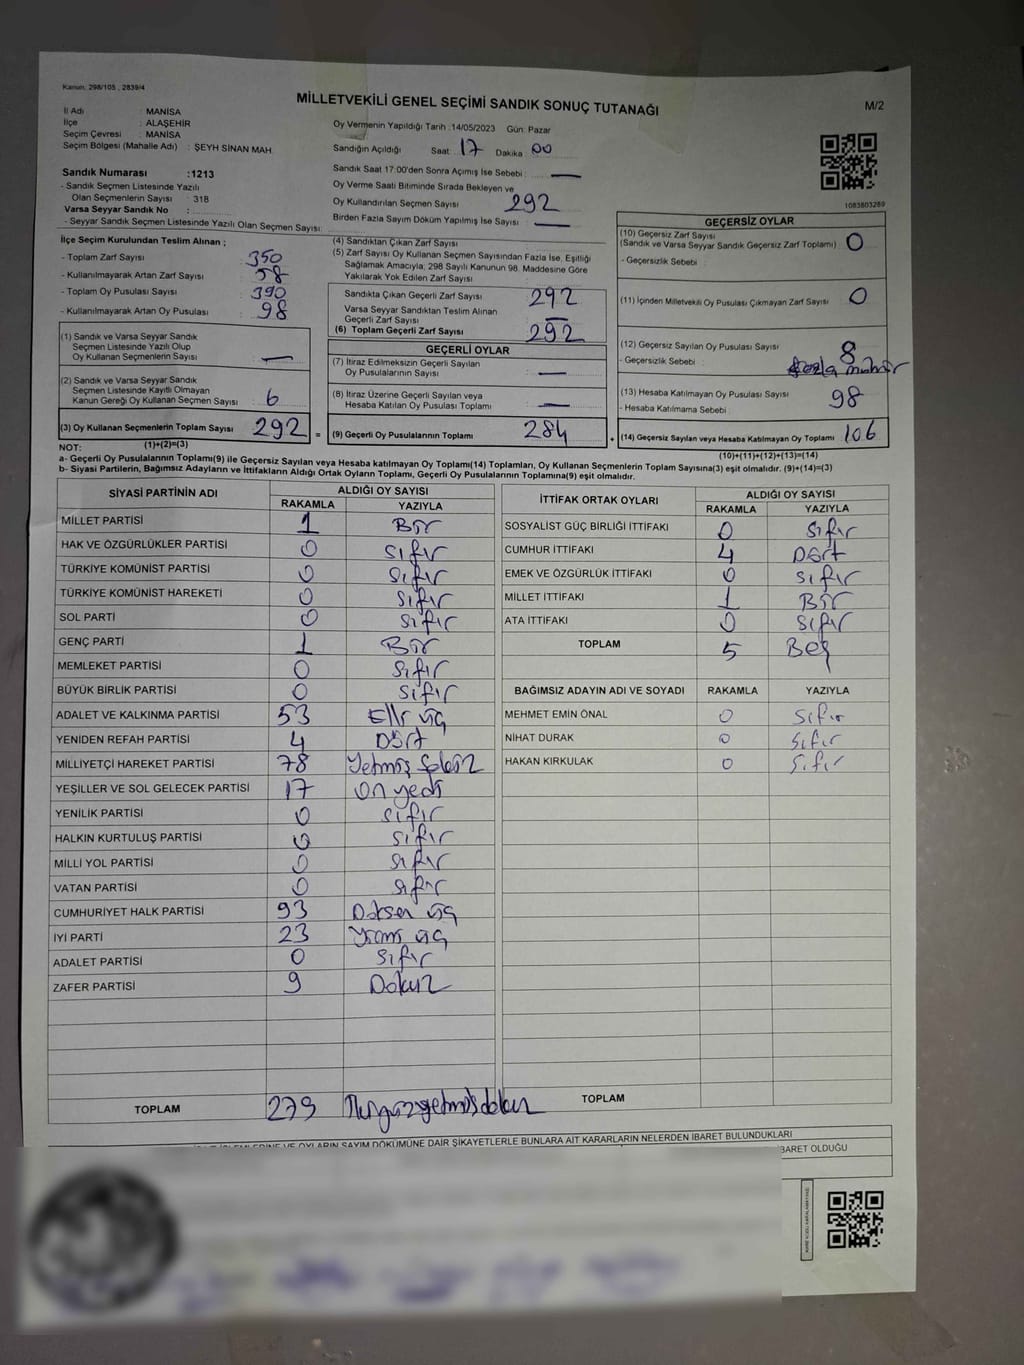 Kanun: 298/105 , 2839/4
MİLLETVEKİLİ GENEL SEÇİMİ SANDIK SONUÇ TUTANAĞI
M/2
İl Adı : MANİSA
İlçe : ALAŞEHİR
Seçim Çevresi : MANİSA
Seçim Bölgesi (Mahalle Adı) : ŞEYH SİNAN MAH.
Sandık Numarası :1213
- Sandık Seçmen Listesinde Yazılı
Olan Seçmenlerin Sayısı : 318
Varsa Seyyar Sandık No :
- Seyyar Sandık Seçmen Listesinde Yazılı Olan Seçmen Sayısı:
Oy Vermenin Yapıldığı Tarih :14/05/2023 Gün: Pazar
Sandığın Açıldığı Saat: 17 Dakika: 00
Sandık Saat 17:00'den Sonra Açımış İse Sebebi : —
Oy Verme Saati Bitiminde Sırada Bekleyen ve
Oy Kullandırılan Seçmen Sayısı : 292
Birden Fazla Sayım Döküm Yapılmış İse Sayısı : —
1083803289
İlçe Seçim Kurulundan Teslim Alınan ;
- Toplam Zarf Sayısı : 350
- Kullanılmayarak Artan Zarf Sayısı : 58
- Toplam Oy Pusulası Sayısı : 390
- Kullanılmayarak Artan Oy Pusulası : 98
(1) Sandık ve Varsa Seyyar Sandık
Seçmen Listesinde Yazılı Olup
Oy Kullanan Seçmenlerin Sayısı : —
(2) Sandık ve Varsa Seyyar Sandık
Seçmen Listesinde Kayıtlı Olmayan
Kanun Gereği Oy Kullanan Seçmen Sayısı : 6
(3) Oy Kullanan Seçmenlerin Toplam Sayısı 292 =
(1)+(2)=(3)
(4) Sandıktan Çıkan Zarf Sayısı
(5) Zarf Sayısı Oy Kullanan Seçmen Sayısından Fazla İse, Eşitliği
Sağlamak Amacıyla; 298 Sayılı Kanunun 98. Maddesine Göre
Yakılarak Yok Edilen Zarf Sayısı
Sandıkta Çıkan Geçerli Zarf Sayısı 292
Varsa Seyyar Sandıktan Teslim Alınan
Geçerli Zarf Sayısı : —
(6) Toplam Geçerli Zarf Sayısı : 292
GEÇERLİ OYLAR
(7) İtiraz Edilmeksizin Geçerli Sayılan
Oy Pusulalarının Sayısı : —
(8) İtiraz Üzerine Geçerli Sayılan veya
Hesaba Katılan Oy Pusulası Toplamı : —
(9) Geçerli Oy Pusulalarının Toplamı : 284 +
GEÇERSİZ OYLAR
(10) Geçersiz Zarf Sayısı
(Sandık ve Varsa Seyyar Sandık Geçersiz Zarf Toplamı) : 0
- Geçersizlik Sebebi :
(11) İçinden Milletvekili Oy Pusulası Çıkmayan Zarf Sayısı : 0
(12) Geçersiz Sayılan Oy Pusulası Sayısı : 8
- Geçersizlik Sebebi : fazla mühür
(13) Hesaba Katılmayan Oy Pusulası Sayısı : 98
- Hesaba Katılmama Sebebi :
(14) Geçersiz Sayılan veya Hesaba Katılmayan Oy Toplamı : 106
(10)+(11)+(12)+(13)=(14)
NOT:
a- Geçerli Oy Pusulalarının Toplamı(9) ile Geçersiz Sayılan veya Hesaba katılmayan Oy Toplamı(14) Toplamları, Oy Kullanan Seçmenlerin Toplam Sayısına(3) eşit olmalıdır. (9)+(14)=(3)
b- Siyasi Partilerin, Bağımsız Adayların ve İttifakların Aldığı Ortak Oyların Toplamı, Geçerli Oy Pusulalarının Toplamına(9) eşit olmalıdır.
SİYASİ PARTİNİN ADI ALDIĞI OY SAYISI
RAKAMLA YAZIYLA
MİLLET PARTİSİ 1 Bir
HAK VE ÖZGÜRLÜKLER PARTİSİ 0 sıfır
TÜRKİYE KOMÜNİST PARTİSİ 0 sıfır
TÜRKİYE KOMÜNİST HAREKETİ 0 sıfır
SOL PARTİ 0 sıfır
GENÇ PARTİ 1 Bir
MEMLEKET PARTİSİ 0 sıfır
BÜYÜK BİRLİK PARTİSİ 0 sıfır
ADALET VE KALKINMA PARTİSİ 53 Elli üç
YENİDEN REFAH PARTİSİ 4 Dört
MİLLİYETÇİ HAREKET PARTİSİ 78 Yetmiş Sekiz
YEŞİLLER VE SOL GELECEK PARTİSİ 17 on yedi
YENİLİK PARTİSİ 0 sıfır
HALKIN KURTULUŞ PARTİSİ 0 sıfır
MİLLİ YOL PARTİSİ 0 sıfır
VATAN PARTİSİ 0 sıfır
CUMHURİYET HALK PARTİSİ 93 Doksan üç
İYİ PARTİ 23 Yirmi üç
ADALET PARTİSİ 0 sıfır
ZAFER PARTİSİ 9 Dokuz
TOPLAM 279 İkiyüzyetmişdokuz
İTTİFAK ORTAK OYLARI ALDIĞI OY SAYISI
RAKAMLA YAZIYLA
SOSYALİST GÜÇ BİRLİĞİ İTTİFAKI 0 sıfır
CUMHUR İTTİFAKI 4 Dört
EMEK VE ÖZGÜRLÜK İTTİFAKI 0 sıfır
MİLLET İTTİFAKI 1 Bir
ATA İTTİFAKI 0 sıfır
TOPLAM 5 Beş
BAĞIMSIZ ADAYIN ADI VE SOYADI RAKAMLA YAZIYLA
MEHMET EMİN ÖNAL 0 Sıfır
NİHAT DURAK 0 Sıfır
HAKAN KIRKULAK 0 Sıfır
TOPLAM
OYLARIN SAYIM DÖKÜMÜNE DAİR ŞİKAYETLERLE BUNLARA AİT KARARLARIN NELERDEN İBARET BULUNDUKLARI
İBARET OLDUĞU